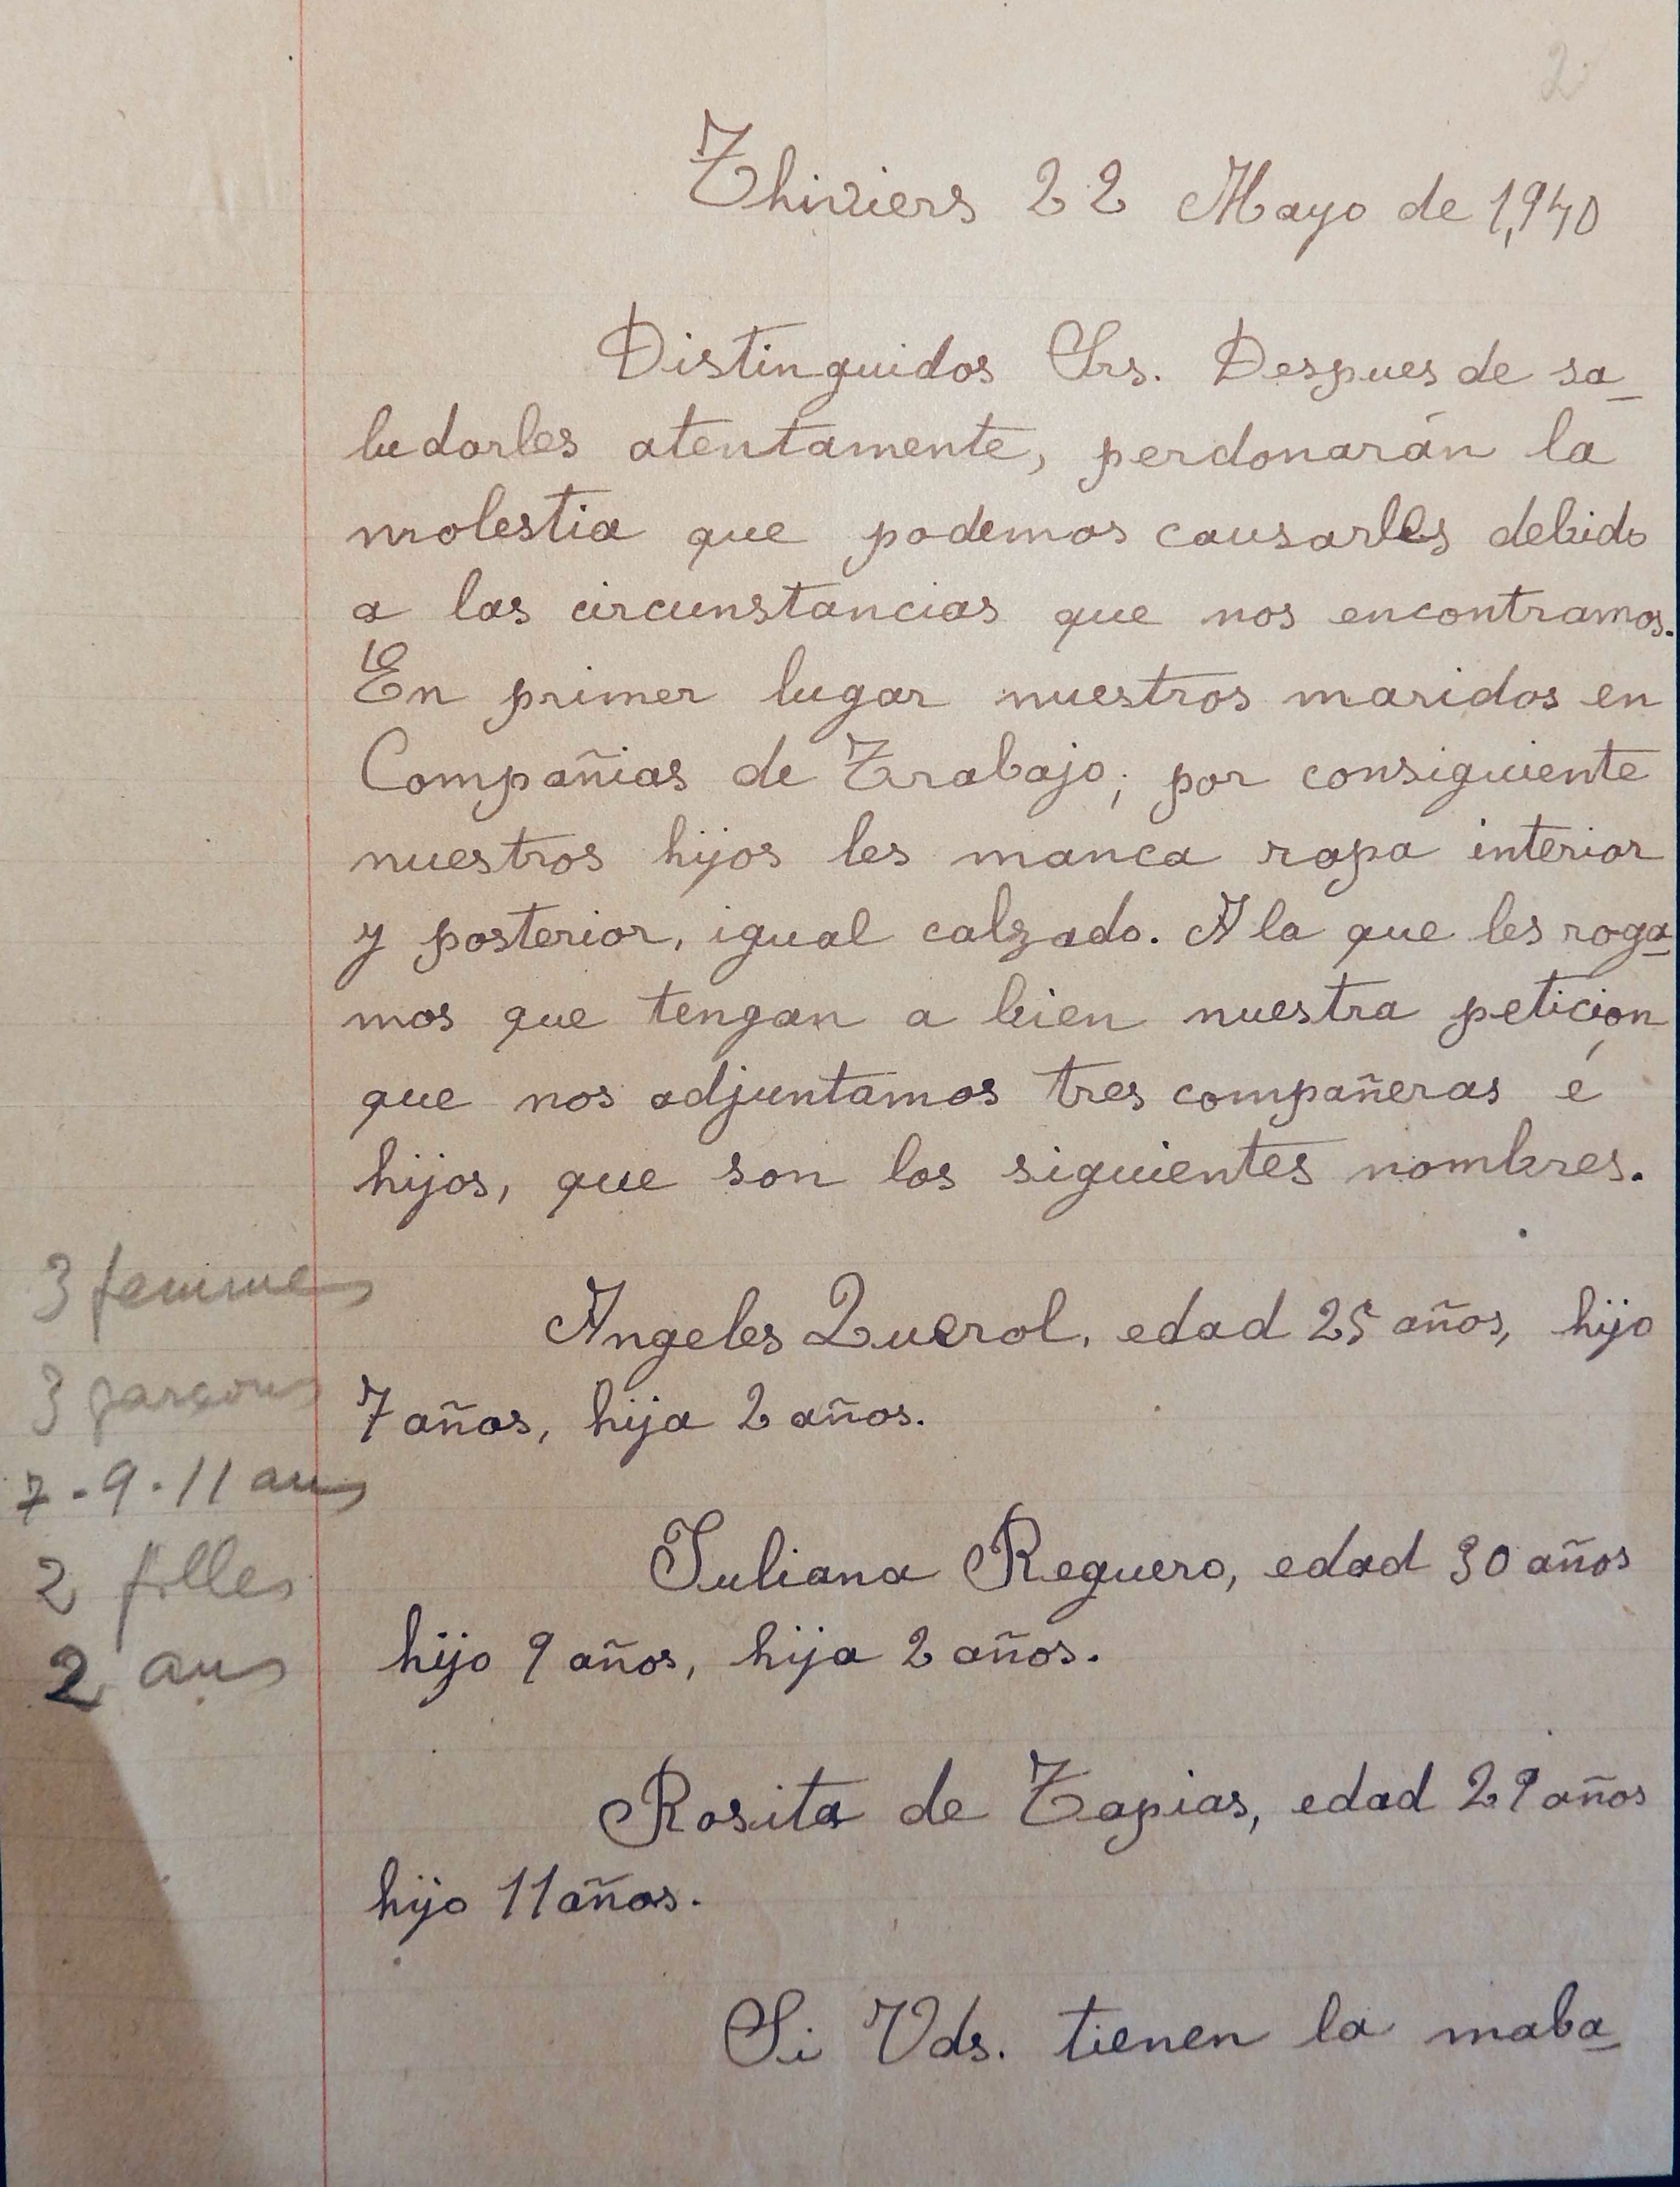 2
Thiviers 22 Mayo de 1,940
Distinguidos Srs. Despues de sa-
ludarles atentamente, perdonarán la
molestia que podemos causarles debido
a las circunstancias que nos encontramos.
En primer lugar nuestros maridos en
Compañias de Trabajo; por consiguiente
nuestros hijos les manca ropa interior
y posterior, igual calzado. A la que les roga-
mos que tengan a bien nuestra peticion
que nos adjuntamos tres compañeras é
hijos, que son los siguientes nombres.
3 femmes
Angeles Querol, edad 25 años, hijo
3 garçons
7 años, hija 2 años.
7-9-11 ans
Juliana Reguero, edad 30 años
2 filles
hijo 9 años, hija 2 años.
2 ans
Rosita de Tapias, edad 29 años
hijo 11 años.
Si Vds. tienen la maba-